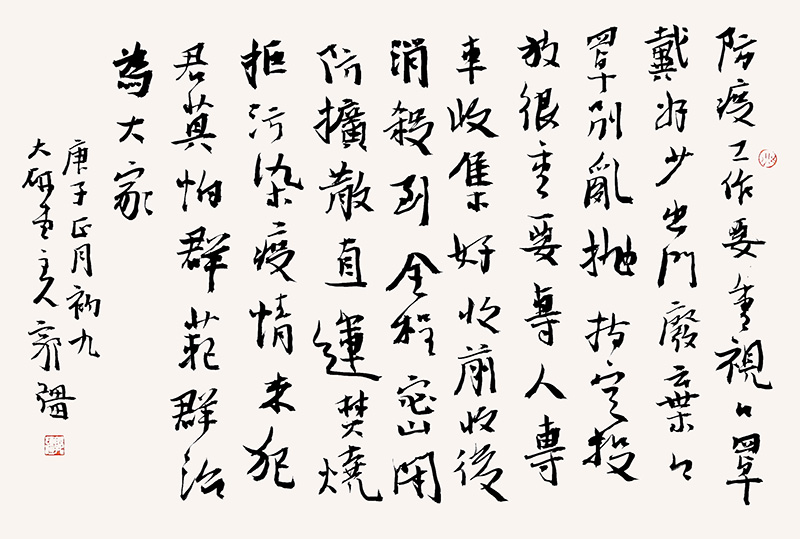 防疫工作要重視口罩
戴好少出門廢棄口
罩別亂拋指定投
放很重要專人專
車收集好收前收後
消殺到全程密閉
防擴散直運焚燒
拒污染疫情來犯
君莫怕群範群治
為大家
庚子正月初九
大研主人郭彊